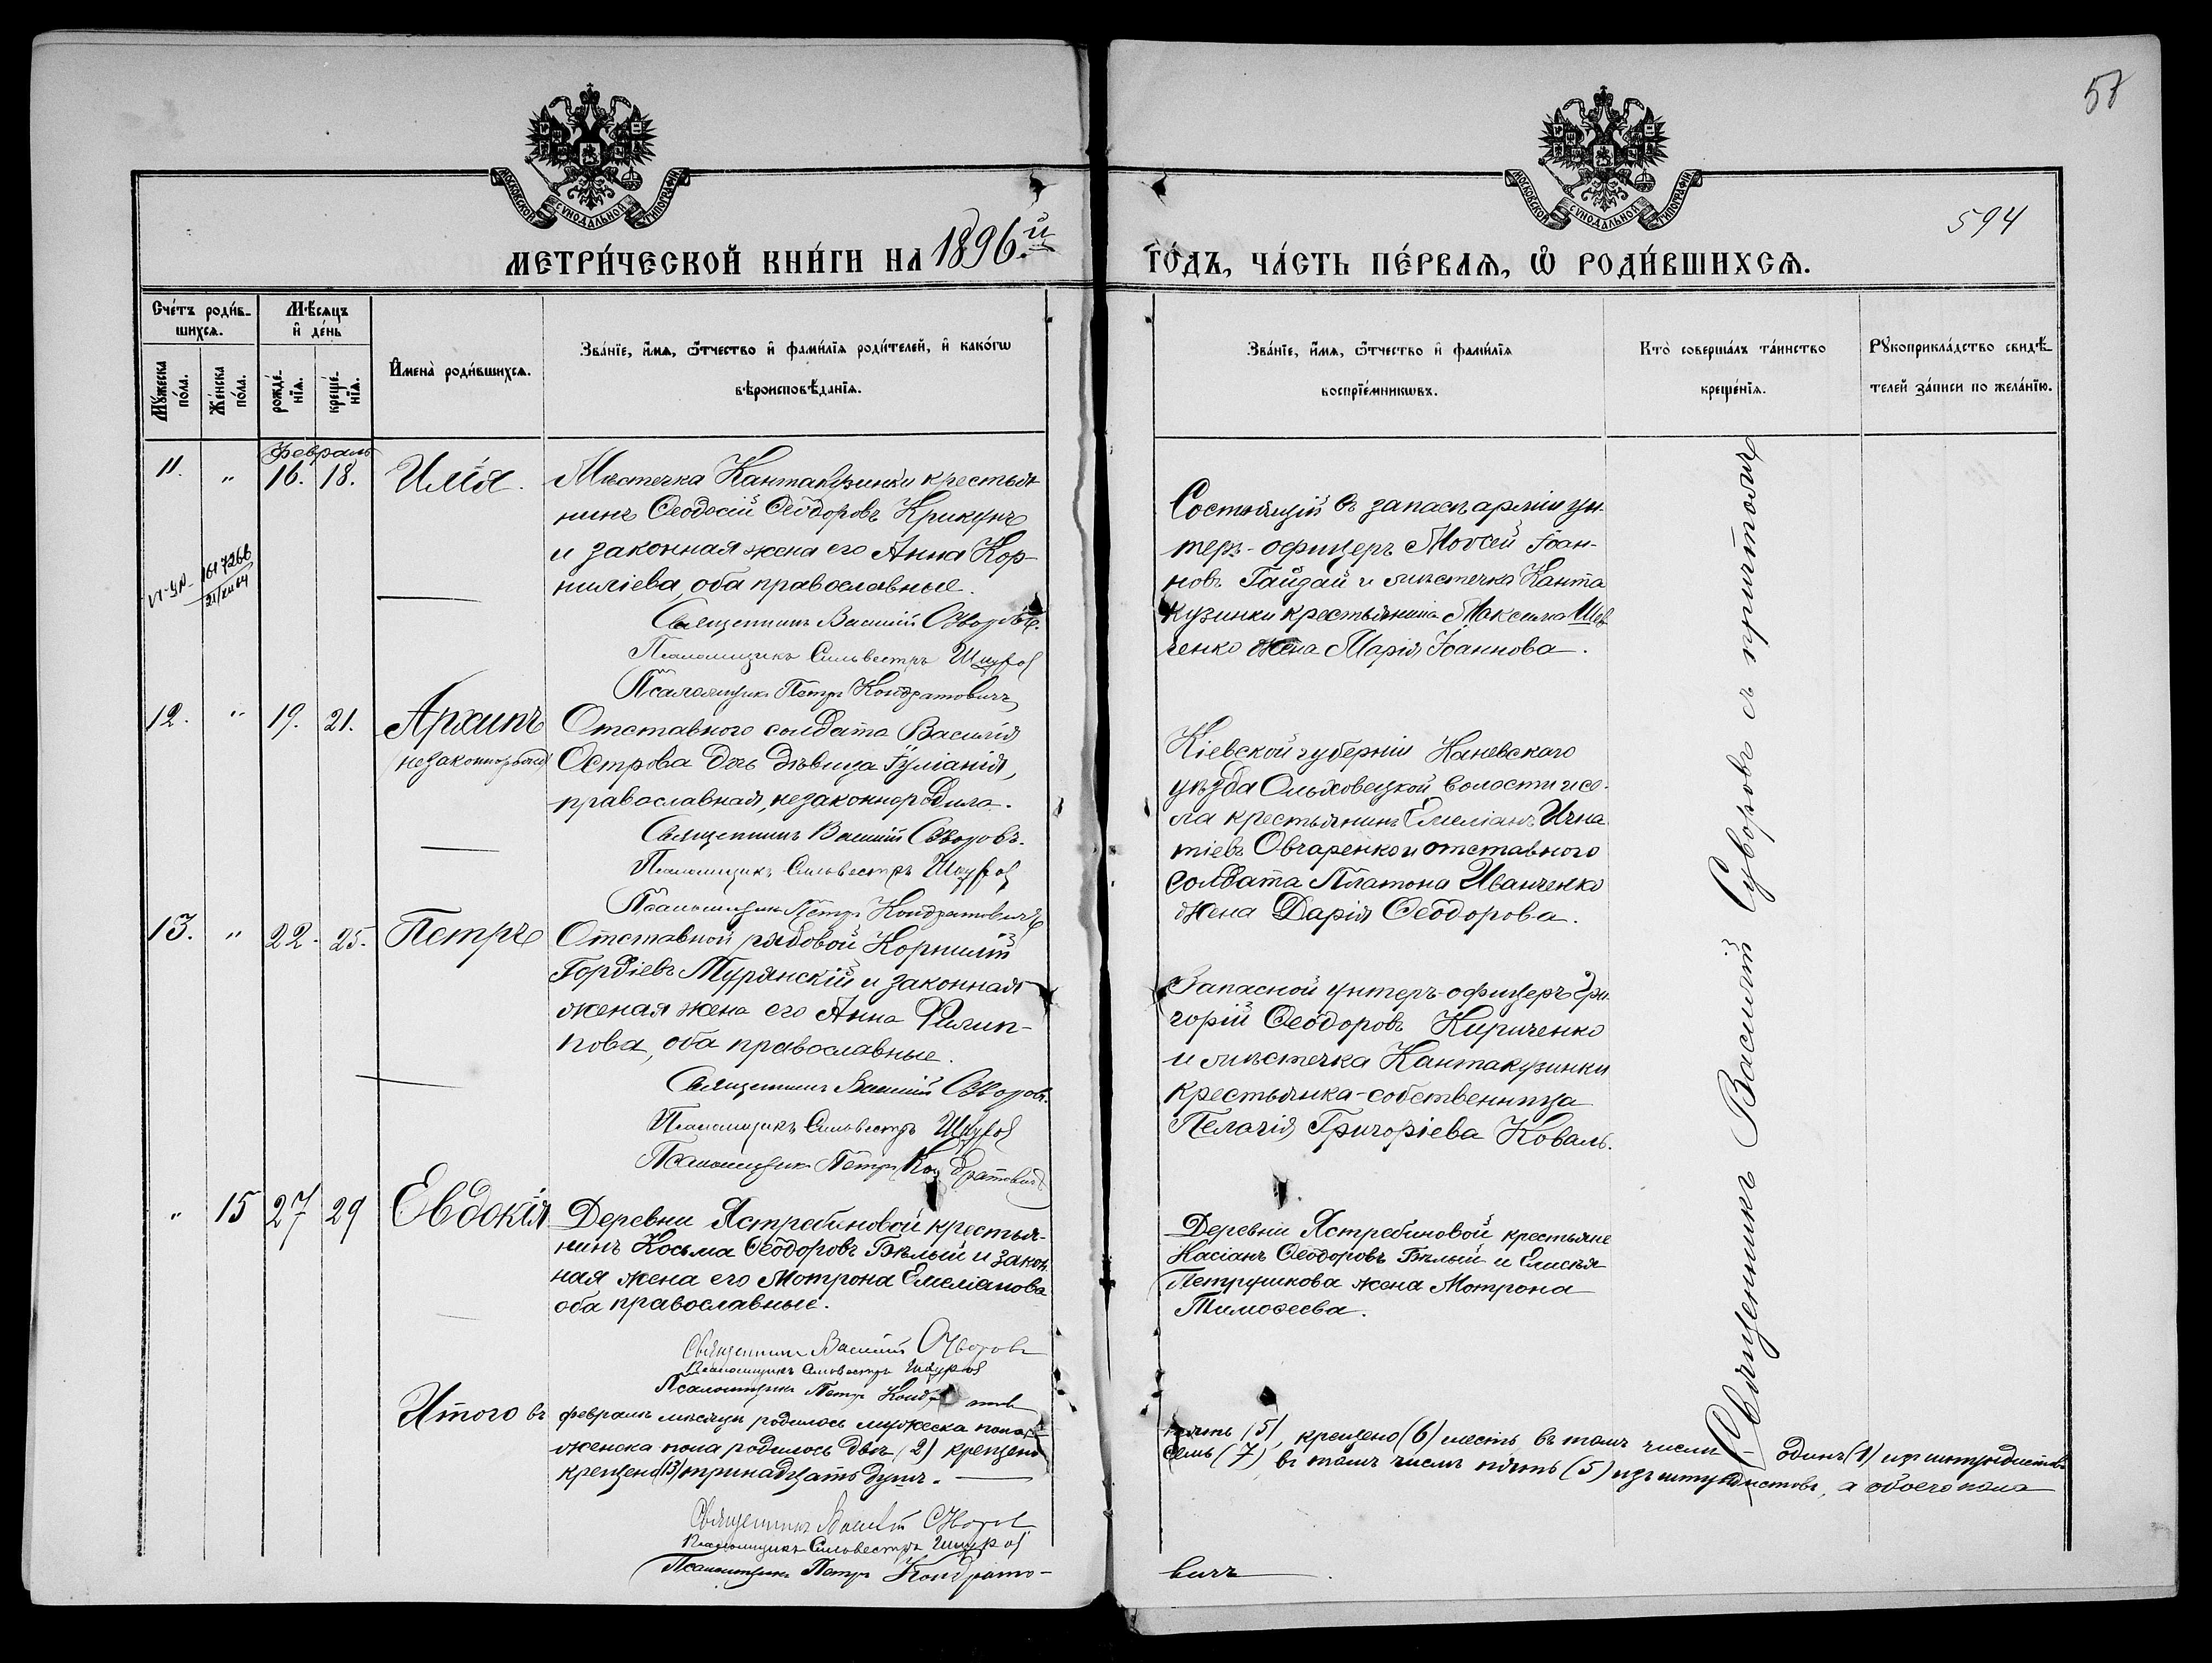 57
594
МОСКОВСКОЙ СУНОДАЛЬНОЙ ТИПОГРАФІИ
МОСКОВСКОЙ СУНОДАЛЬНОЙ ТИПОГРАФІИ
МЕТРИ́ЧЕСКОЙ КНИ́ГИ НА 1896.й
ГО́ДЪ, ЧА́СТЬ ПЕ́РВАѦ, Ѡ РОДИ́ВШИХСѦ.
Сче́тъ роди́в-
шихсѧ.
Мꙋ́жеска по́ла.
Же́нска по́ла.
Мѣ́сѧцъ
и҆ де́нь
рожде́-
нїѧ.
креще́-
нїѧ.
И҆мена̀ роди́вшихсѧ.
Зва́нїе, и҆́мѧ, ѻ҆́тчество и҆ фами́лїѧ роди́телей, и҆ како́гѡ
вѣроисповѣ́данїѧ.
Зва́нїе, и҆́мѧ, ѻ҆́тчество и҆ фами́лїѧ
воспрїе́мникѡвъ.
Кто̀ соверша́лъ та́инство
креще́нїѧ.
Рꙋкоприкла́дство свидѣ́-
телей за́писи по жела́нїю.
Февраль
11. „ 16. 18. Илія.
Мѣстечка Кантакузинки крестья-
нинъ Ѳеодосій Ѳеодоровъ Крикунъ
и законная жена его Анна Кор-
ниліева, оба православные.
Священникъ Василій Суворовъ.
Псаломщикъ Сильвестръ
Псаломщикъ Петръ Кондратовичъ
Состоящій въ запасѣ арміи ун-
теръ-офицеръ Моѵсей Іоан-
новъ Гайдай и мѣстечка Канта
кузинки крестьянина Максима Шев
ченко жена Марія Іоаннова.
12. „ 19. 21. Архипъ
незаконнорожд.
Отставного солдата Василія
Острова дочь дѣвица Іуліанія,
православная, незаконнородила.
Священникъ Василій Суворовъ.
Псаломщикъ Сильвестръ
Псаломщикъ Петръ Кондратовичъ
Кіевской губерніи Каневскаго
уѣзда Ольховецкой волости и се-
ла крестьянинъ Емеліанъ Игна
тіевъ Овчаренко и отставного
солдата Платона Иванченко
жена Дарія Ѳеодорова.
13. „ 22. 25. Петръ
Отставной рядовой Корнилій
Гордіевъ Мурянскій и законная
женая жена его Анна Филип-
пова, оба православные.
Священникъ Василій Суворовъ.
Псаломщикъ Сильвестръ
Псаломщикъ Петръ Кондратовичъ
Запасной унтеръ-офицеръ Гри-
горій Ѳеодоровъ Кириченко
и мѣстечка Кантакузинки
крестьянка-собственница
Пелагія Григоріева Коваль.
„ 15 27 29 Евдокія
Деревни Ястребиновой крестья-
нинъ Косьма Ѳеодоровъ Бѣлый и закон-
ная жена его Мотрона Емеліанова
оба православные.
Священникъ Василій Суворовъ
Псаломщикъ Сильвестръ
Псаломщикъ Петръ
Деревни Ястребиновой крестьяне
Касіанъ Ѳеодоровъ Бѣлый и Елисѣя
Петрушкова жена Мотрона
Тимоѳеева.
Священникъ Василій Суворовъ съ причтомъ
Итого въ февралѣ мѣсяцѣ родилось мужеска пола пять (5), крещено (6) шесть, въ томъ числѣ одинъ (1) изъ штундистовъ
женска пола родилось двѣ (2) крещено семь (7) въ томъ числѣ пять (5) изъ штундистовъ, а обоего пола
крещено (13) тринадцать душъ.
Священникъ Василій Суворовъ
Псаломщикъ Сильвестръ
Псаломщикъ Петръ Кондрато-
вичъ